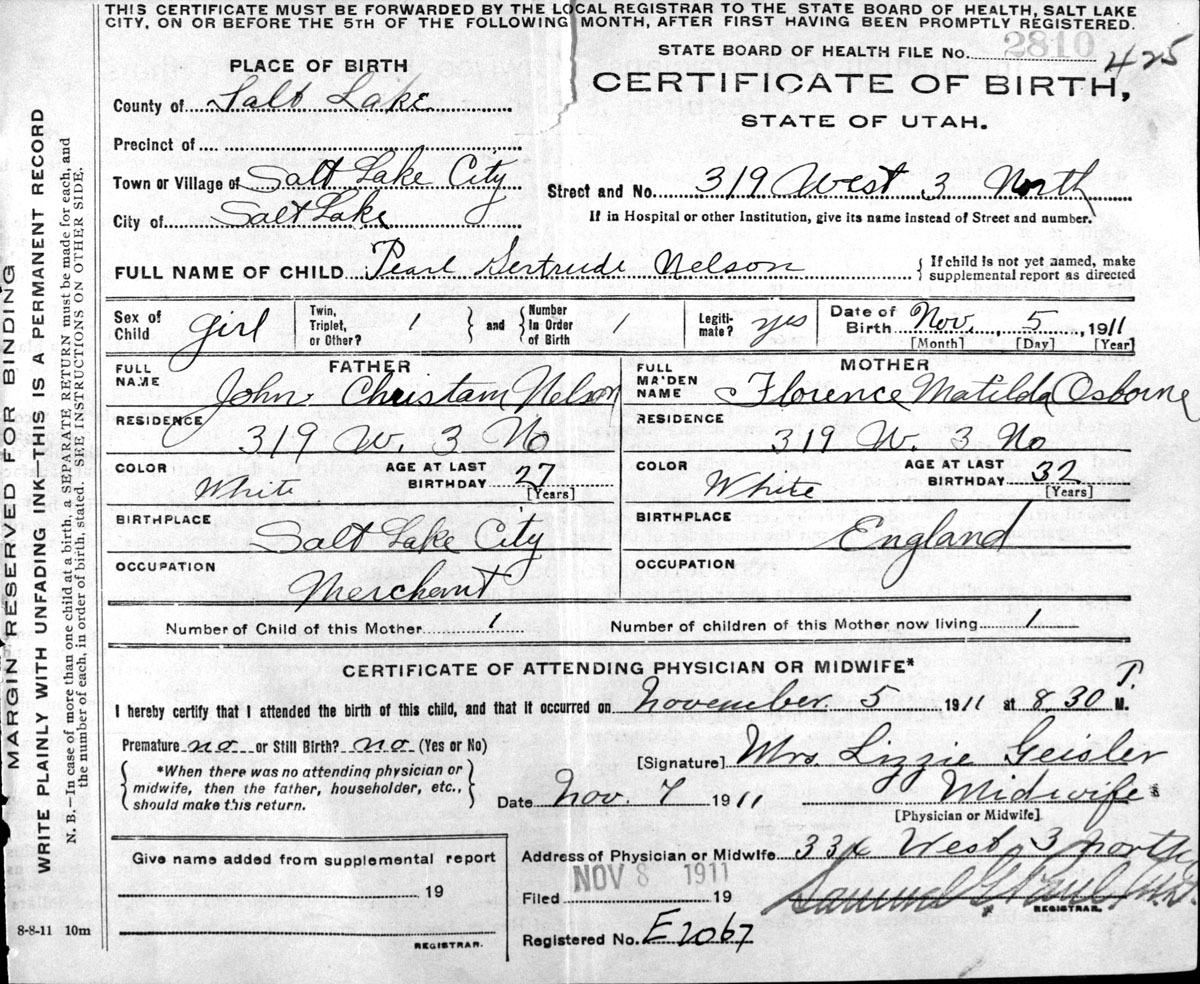 THIS CERTIFICATE MUST BE FORWARDED BY THE LOCAL REGISTRAR TO THE STATE BOARD OF HEALTH, SALT LAKE
CITY, ON OR BEFORE THE 5TH OF THE FOLLOWING MONTH, AFTER FIRST HAVING BEEN PROMPTLY REGISTERED.
STATE BOARD OF HEALTH FILE No. 2810 425
CERTIFICATE OF BIRTH,
STATE OF UTAH.
PLACE OF BIRTH
County of Salt Lake
Precinct of
Town or Village of Salt Lake City
Street and No. 319 West 3 North
City of Salt Lake
If in Hospital or other Institution, give its name instead of Street and number.
FULL NAME OF CHILD Pearl Gertrude Nelson { If child is not yet named, make
supplemental report as directed
Sex of Child girl
Twin, Triplet, or Other? 1 } and { Number In Order of Birth 1
Legiti-mate? yes
Date of Birth Nov. 5, 1911
[Month] [Day] [Year]
FATHER
FULL NAME John Christam Nelson
RESIDENCE 319 W. 3 No
COLOR White AGE AT LAST BIRTHDAY 27
[Years]
BIRTHPLACE Salt Lake City
OCCUPATION Merchant
MOTHER
FULL MAIDEN NAME Florence Matilda Osborne
RESIDENCE 319 W. 3 No
COLOR White AGE AT LAST BIRTHDAY 32
[Years]
BIRTHPLACE England
OCCUPATION
Number of Child of this Mother 1 Number of children of this Mother now living 1
CERTIFICATE OF ATTENDING PHYSICIAN OR MIDWIFE*
I hereby certify that I attended the birth of this child, and that it occurred on November 5 1911 at 8.30 P. M.
Premature no or Still Birth? no (Yes or No)
{ *When there was no attending physician or
midwife, then the father, householder, etc.,
should make this return. }
[Signature] Mrs Lizzie Geisler
Date Nov. 7 1911 Midwife
[Physician or Midwife]
Give name added from supplemental report
19
REGISTRAR.
Address of Physician or Midwife West 3 North
Filed NOV 8 1911 19
REGISTRAR.
Registered No. E2067
MARGIN RESERVED FOR BINDING
WRITE PLAINLY WITH UNFADING INK—THIS IS A PERMANENT RECORD
N. B.—In case of more than one child at a birth, a SEPARATE RETURN must be made for each, and
the number of each, in order of birth, stated. SEE INSTRUCTIONS ON OTHER SIDE.
8-8-11 10m